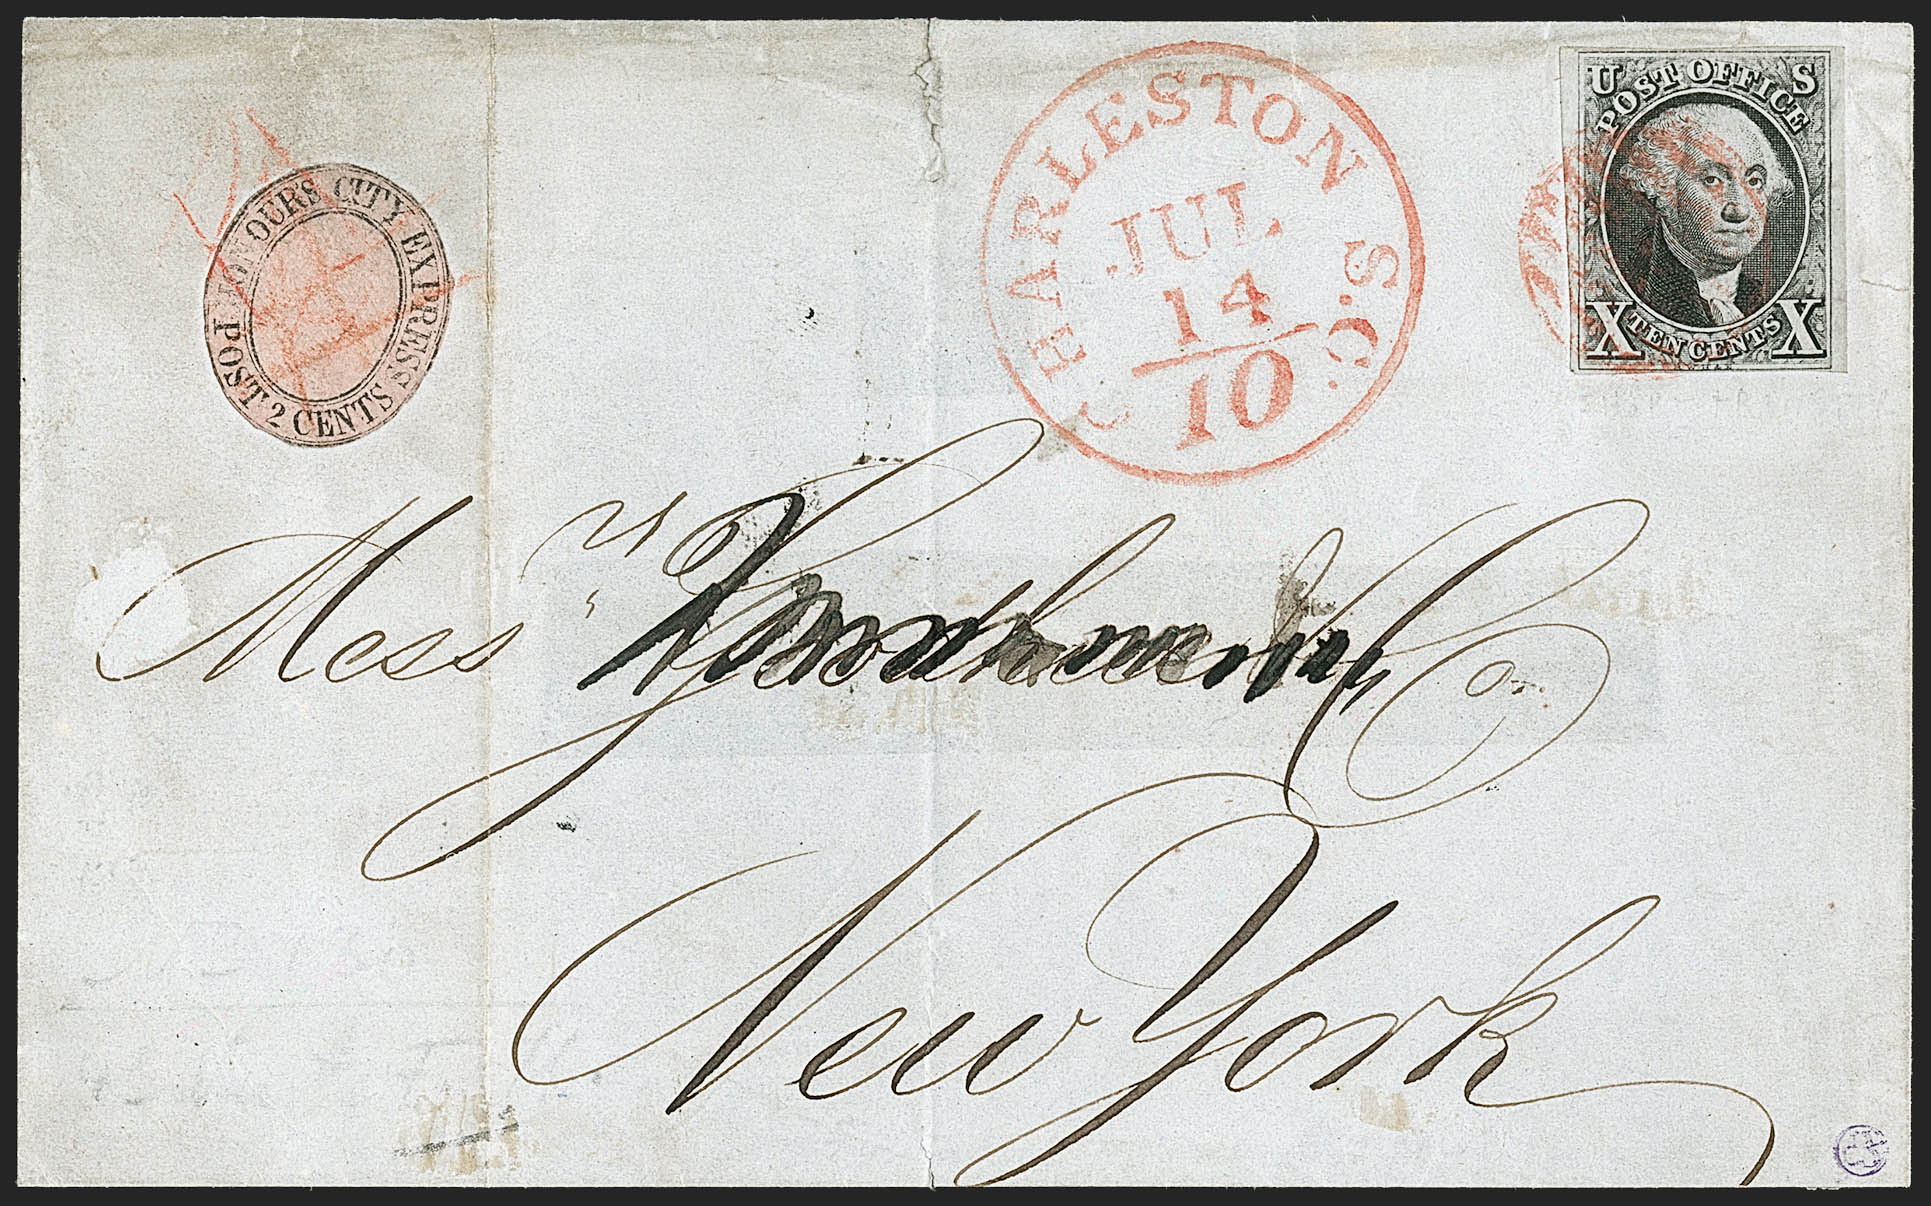 HONOUR'S CITY EXPRESS
POST 2 CENTS
CHARLESTON S.C.
JUL
14
10
U S
POST OFFICE
X TEN CENTS X
Mess rs
New York